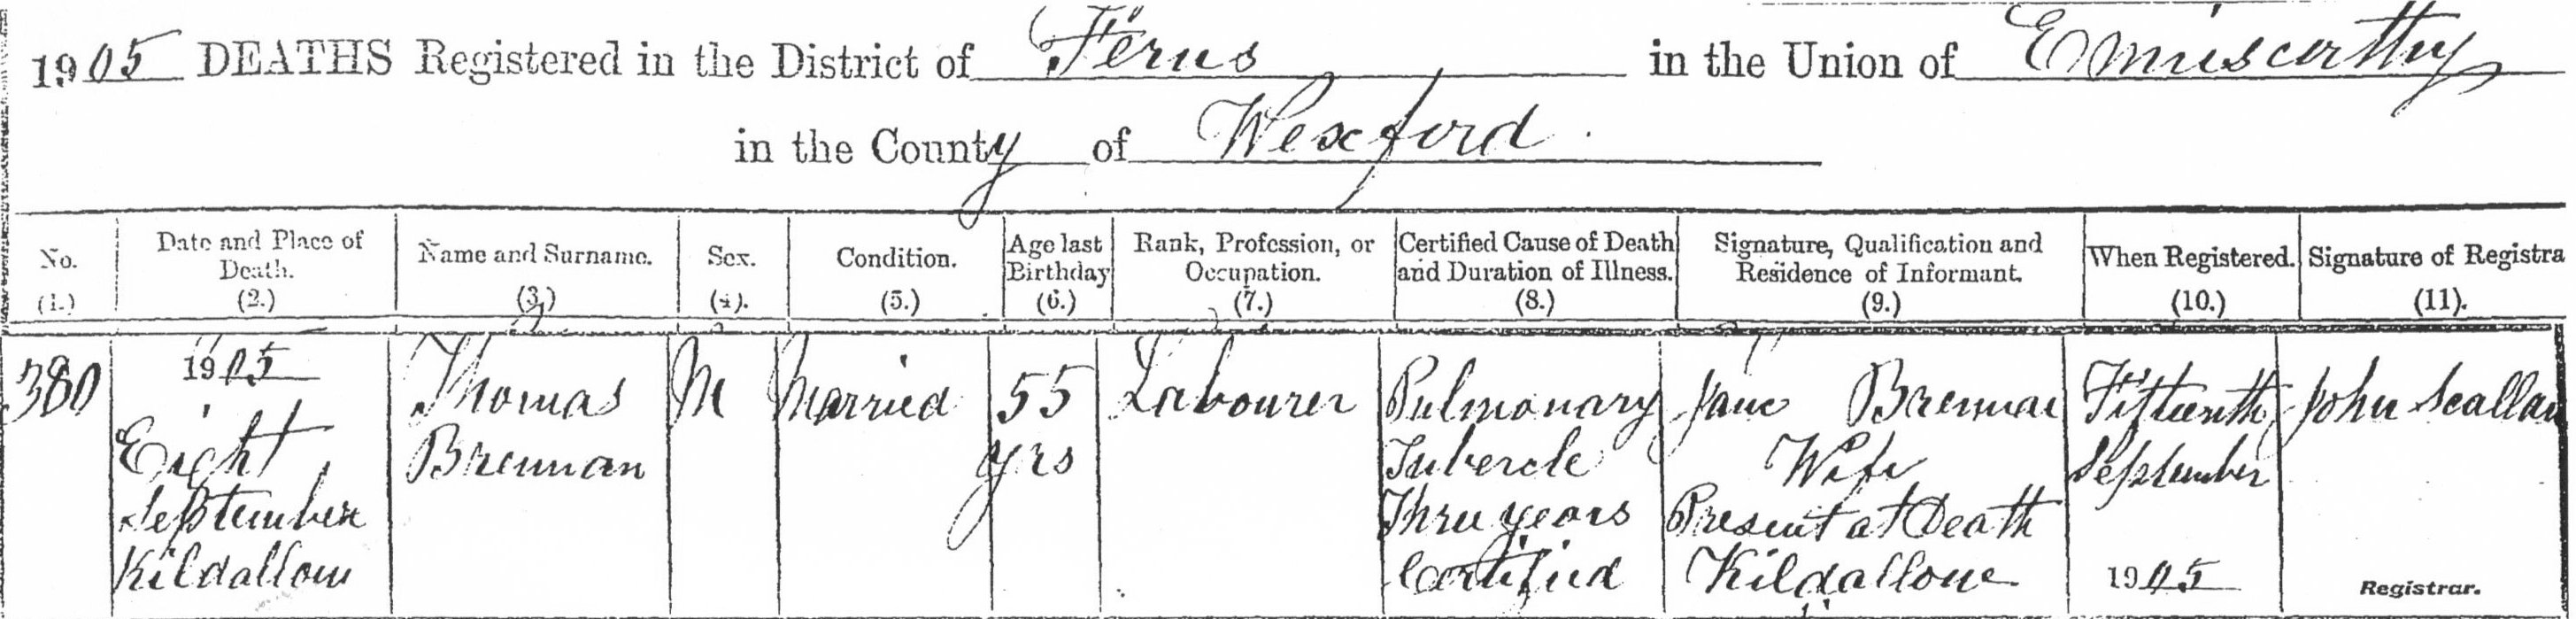 1905 DEATHS Registered in the District of Ferns in the Union of Enniscorthy
in the County of Wexford
No. (1.)
Date and Place of Death. (2.)
Name and Surname. (3.)
Sex. (4).
Condition. (5.)
Age last Birthday (6.)
Rank, Profession, or Occupation. (7.)
Certified Cause of Death and Duration of Illness. (8.)
Signature, Qualification and Residence of Informant. (9.)
When Registered. (10.)
Signature of Registra (11).
380
1905
Eight
September
Kildallow
Thomas
Brennan
M
Married
55
yrs
Labourer
Pulmonary
Tubercle
Three years
Certified
Jane Brennan
Wife
Present at Death
Kildallone
Fifteenth
September
1905
John Scallan
Registrar.